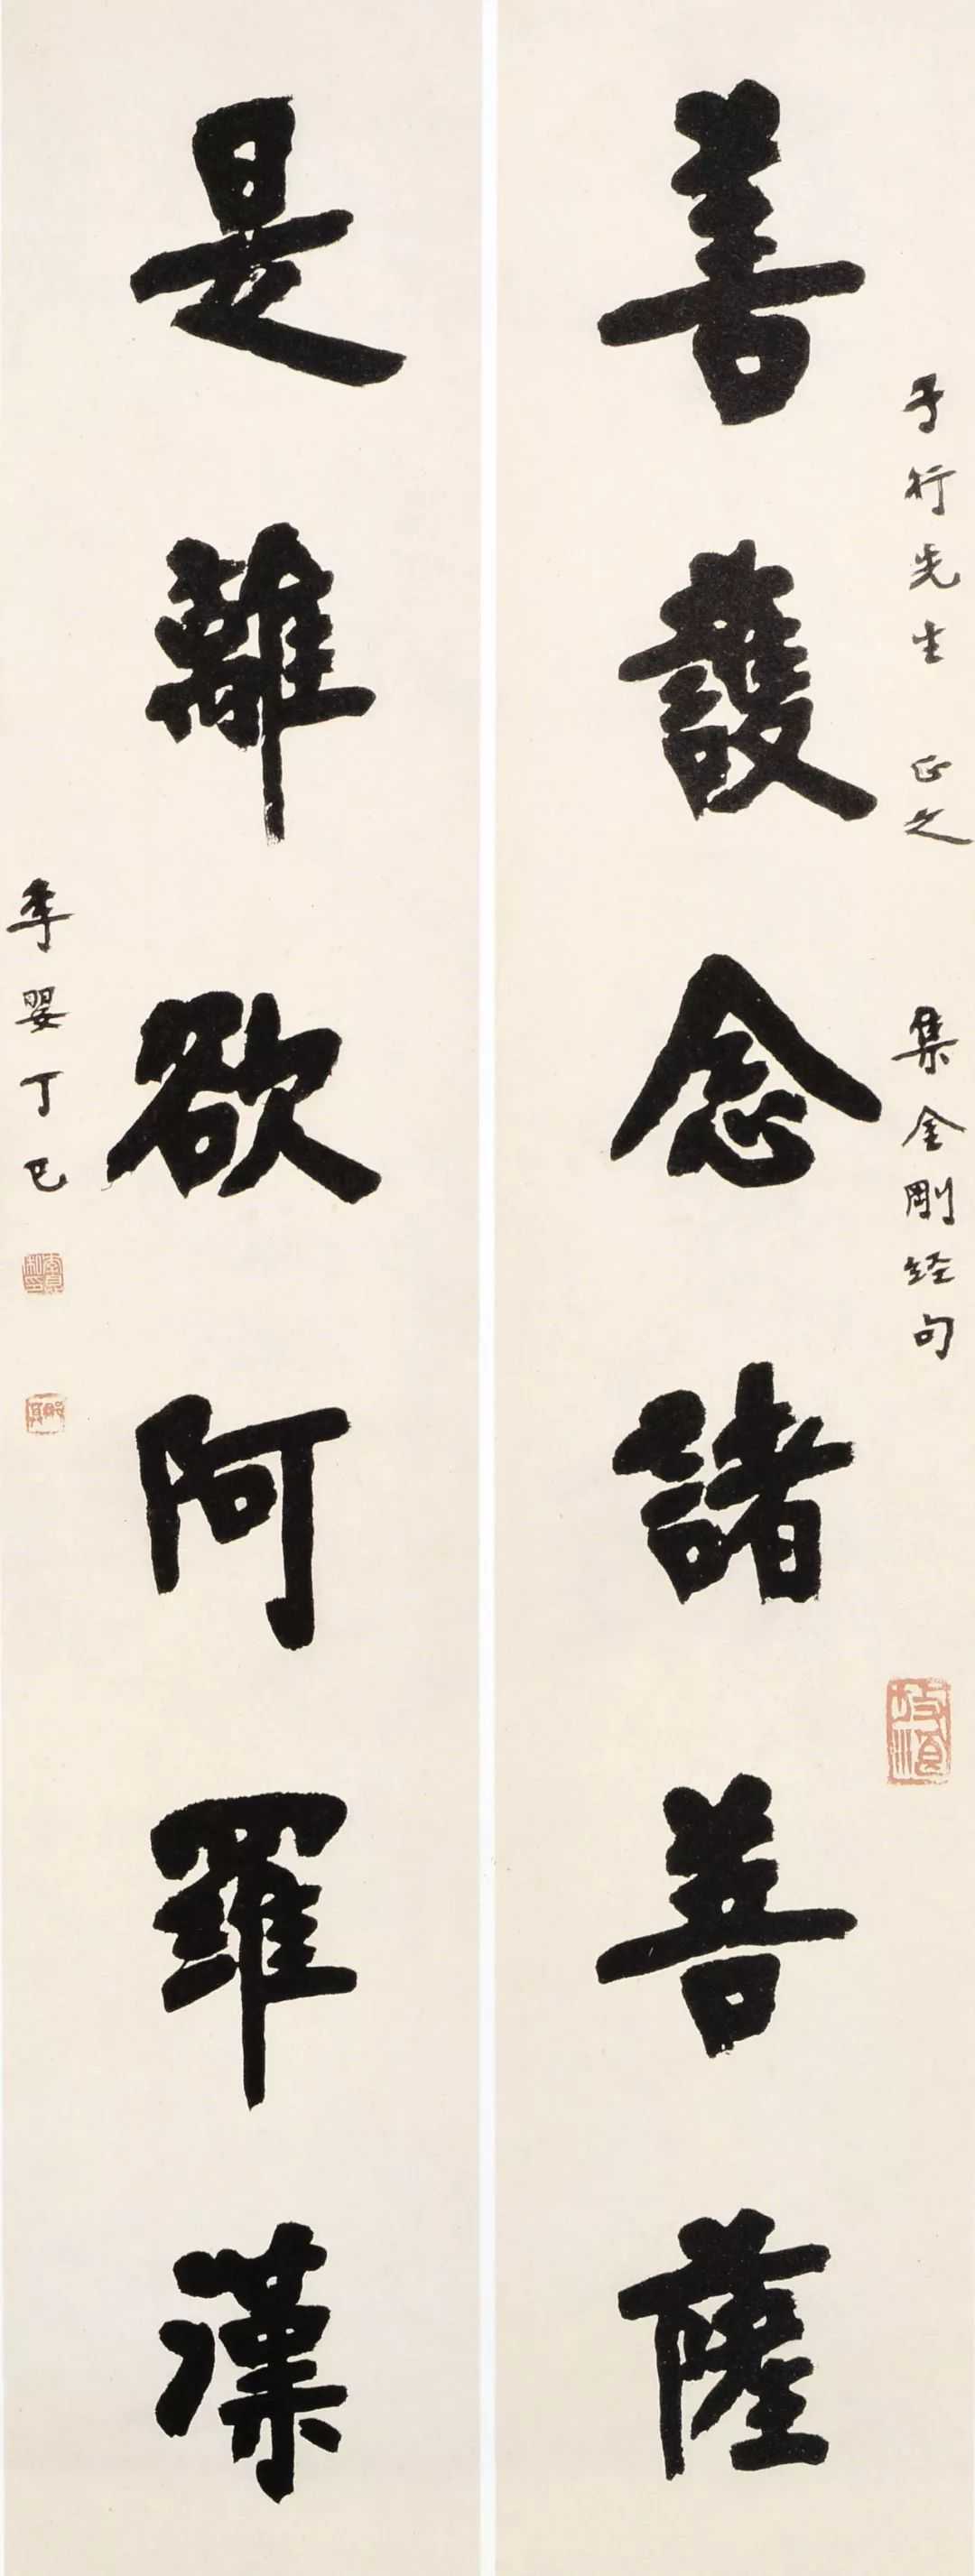 子行先生 正之 集金剛經句
善護念諸菩薩
是離欲阿羅漢
季嬰丁巳